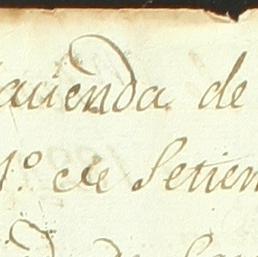 auienda de
1º de Setiem